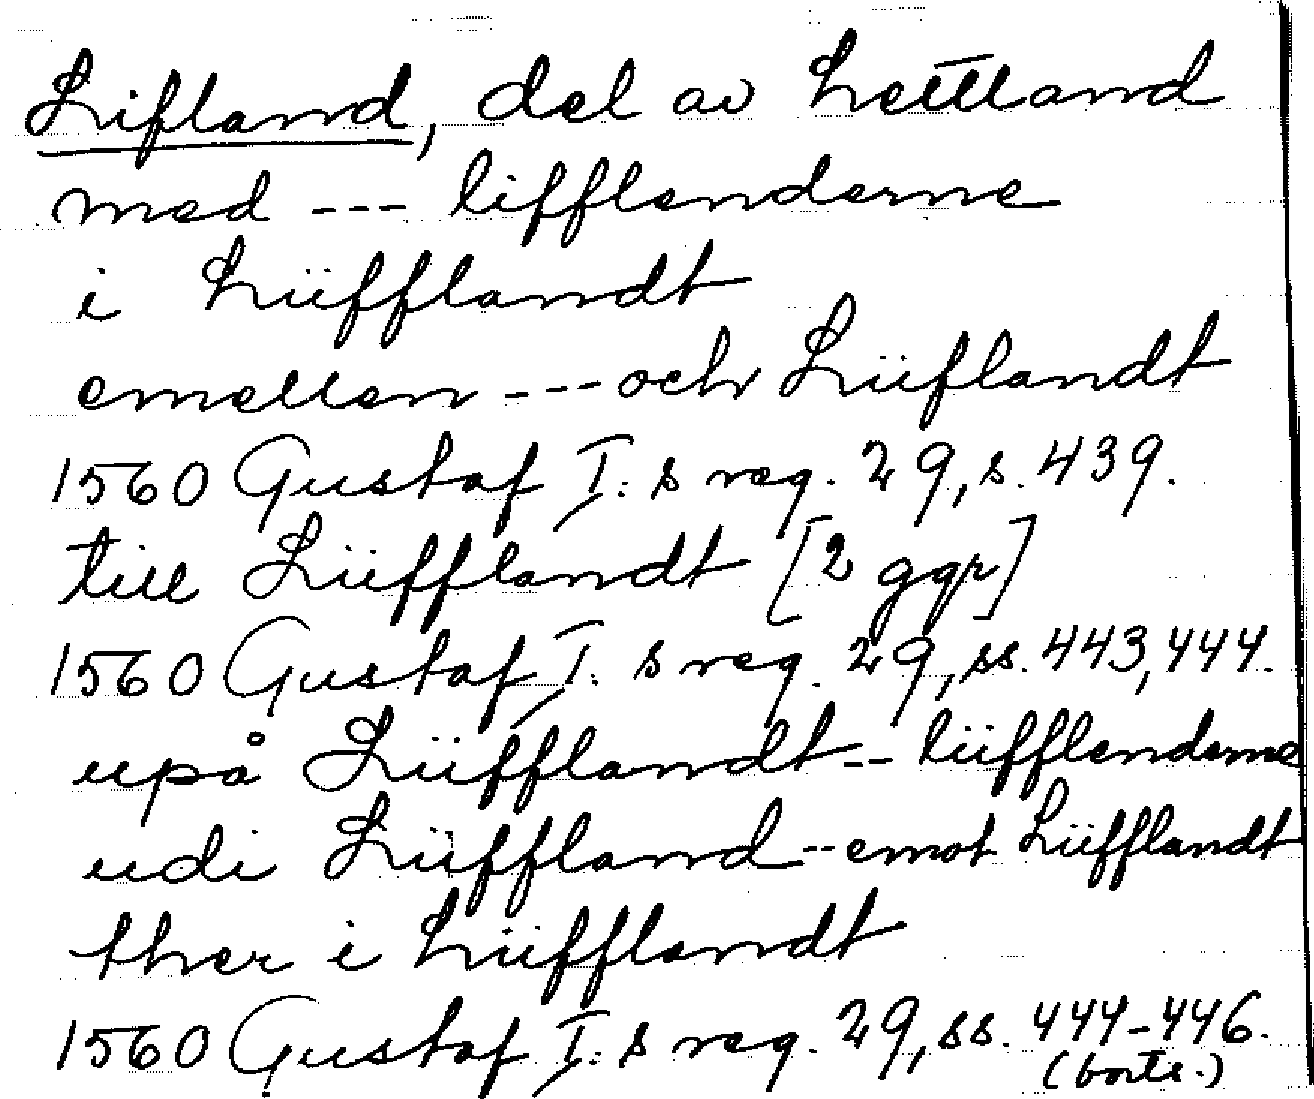 Lifland, del av Lettland
med --- lifflenderne
i Lüfflandt
emellen --- och Lüflandt
1560 Gustaf I:s reg. 29, s. 439.
till Lüfflandt [2 ggr]
1560 Gustaf I:s reg. 29, ss. 443, 444.
upå Lüfflandt -- lüfflenderne
udi Lüffland -- emot Lüfflandt
ther i Lüfflandt
1560 Gustaf I:s reg. 29, ss. 444-446.
(forts.)